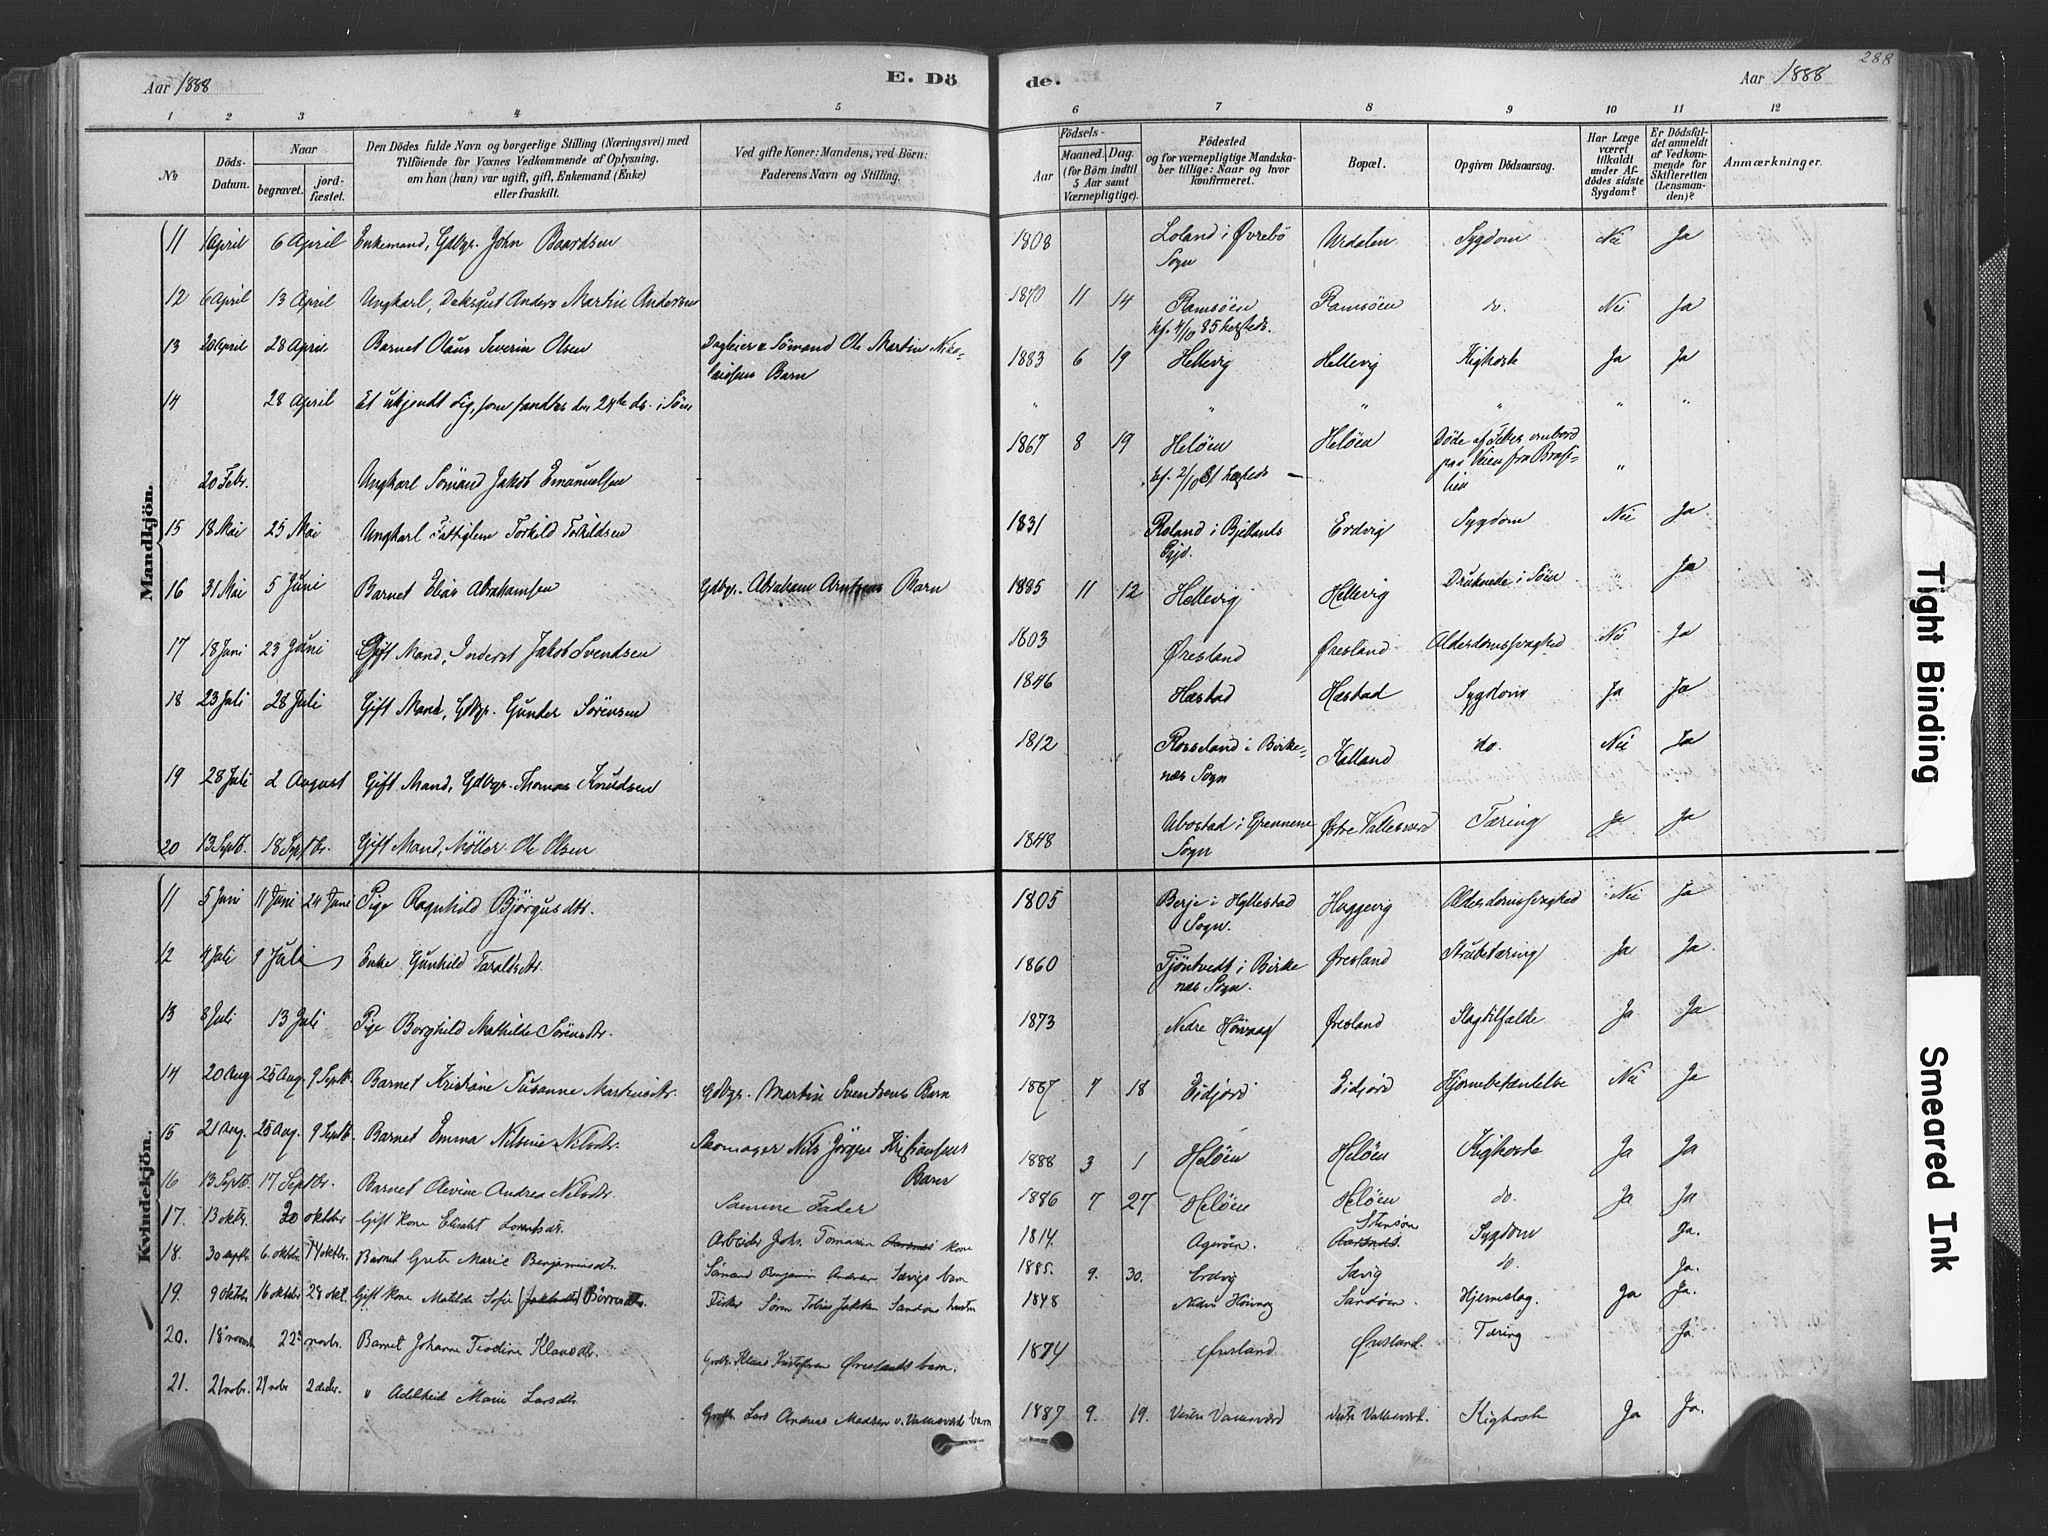 288
Aar 1888 E. Dö de. Aar 1888
1 2 3 4 5 6 7 8 9 10 11 12
No
Döds-Datum.
Naar
begravet.
jord-fæstet.
Den Dödes fulde Navn og borgerlige Stilling (Næringsvei) med
Tilföiende for Voxnes Vedkommende af Oplysning.
om han (hun) var ugift, gift, Enkemand (Enke)
eller fraskilt.
Ved gifte Koner: Mandens, ved Börn:
Faderens Navn og Stilling.
Födsels-
Aar
Maaned. Dag.
(for Börn indtil
5 Aar samt
Værnepligtige).
Födested
og for værnepligtige Mandska-
ber tillige: Naar og hvor
konfirmeret.
Bopæl.
Opgiven Dödsaarsag.
Har Læge
været
tilkaldt
under Af-
dödes sidste
Sygdom?
Er Dödsfal-
det anmeldt
af Vedkom-
mende for
Skifteretten
(Lensman-
den)?
Anmærkninger.
Mandkjön.
11 1 April 6 April Enkemand, Gdbgr. John Baardsen 1808 Loland i Øvrebö Sogn Urdalen Sygdom Nei Ja
12 6 April 13 April Ungkarl, Deksgut Anders Martin Andersen 1870 11 14 Ramsöen kf. 4/10 85 hersteds. Ramsöen do. Nei Ja
13 20 April 28 April Barnet Olaus Severin Olsen Sömand Ole Martin Nico-
laissens Barn 1883 6 19 Hellevig Hellevig Kighoste Ja Ja
14 28 April Et ukjendt Lig, som fandtes den 24de ds. i Söen " " " " " "
20 Febr. Ungkarl Sömand Jakob Emanuelsen 1867 8 19 Helöen kf. 2/10 81 Helöen Döde af Feber ombord
paa Veien fra Brasi-
lien "
15 18 Mai 25 Mai Ungkarl Fattiglem Torkild Torkildsen 1831 Roland i Bjellands Sogn. Erdvig Sygdom Nei Ja
16 31 Mai 5 Juni Barnet Elias Abrahamsen Gdbgr. Abraham Barn 1885 11 12 Hellevig Hellevig Druknede i Söen " Ja
17 18 Juni 23 Juni Gift Mand, Inderst Jakob Svendsen 1803 Øresland Øresland Alderdomssvaghed Nei Ja
18 23 Juli 28 Juli Gift Mand, Gdbgr. Gunder Sörensen 1846 Hæstad Hæstad Sygdom Ja Ja
19 28 Juli 2 August Gift Mand, Gdbgr. Thomas Knudsen 1812 Rosseland i Birke-
næs Sogn Kalland do. Nei Ja
20 13 Septb. 18 Septbr. Gift Mand, Möller Ole Olsen 1848 i Sogn Østre Vallesværd Tæring Ja Ja
Kvindekjön.
11 5 Juni 11 Juni 24 Juni Pige Ragnhild Björgusdtr. 1805 Berje i Hyllestad Sogn. Haggevig Alderdomssvaghed Nei Ja
12 4 Juli 9 Juli Enke Gunhild Taraldsdtr. 1860 Tjöntvedt i Birke
næs Sogn. Øresland Strubetæring Ja Ja
13 8 Juli 13 Juli Pige Borghild Mathilde Sörensdtr. 1873 Nedre Hövaag Øresland Slagtilfælde Ja Ja
14 20 Aug 25 Aug. 9 Septb. Barnet Kristine Susanne Martinsdtr. Gdbgr. Martin Svendsens Barn 1887 7 18 Eidjörd Eidjörd Hjernebetændelse Nei Ja
15 21 Aug. 25 Aug. 9 Septb. Barnet Emma Nilsine Nilsdtr. Skomager Nils Jörgen Kristiansens
Barn 1888 3 1 Helöen Helöen Kighoste Ja Ja
16 13 Septb. 17 Septbr. Barnet Olevine Andrea Nilsdtr. Samme Fader 1886 7 27 Helöen Helöen do. Ja Ja
17. 13 oktr. 20 oktober Gift kone Elisabt Lorentsdtr. Arbeider Johs. Tomasen Aasnes kone 1814. Agerøen. Stensøn Aasnes. Sygdom Ja.
18. 30 septbr. 6. oktbr. 14 oktbr. Barnet Grete Marie Benjaminsdtr. Sömand Benjamin Andersen Sævigs barn 1885. 9. 30. Erdvig Sævig do. Ja.
19. 9 oktbr 16 oktbr 28 okt. Gift kone Matilde Sofie Børresdtr. Fisker Sörn Tobias Jakobsen Sandøens hustru 1848 Nedre Høivaag Sandøen. Hjerneslag. Ja Ja.
20. 18 novbr 22 novbr. Barnet Johanne Teodine Klausdtr. Grdbr. Klaus Kristofersen Øreslands barn. 1874 Øresland Øresland. Tæring Ja.
21. 21 nobr. 29 nobr 2 decbr. " Adelheid Marie Larsdtr. Lars Andreas Madsen v. Vallesværds barn 1887 9. 19. Vestre Vallesværd Vestre Vallesværd. Kighoste Ja Ja.
Tight Binding
Smeared Ink